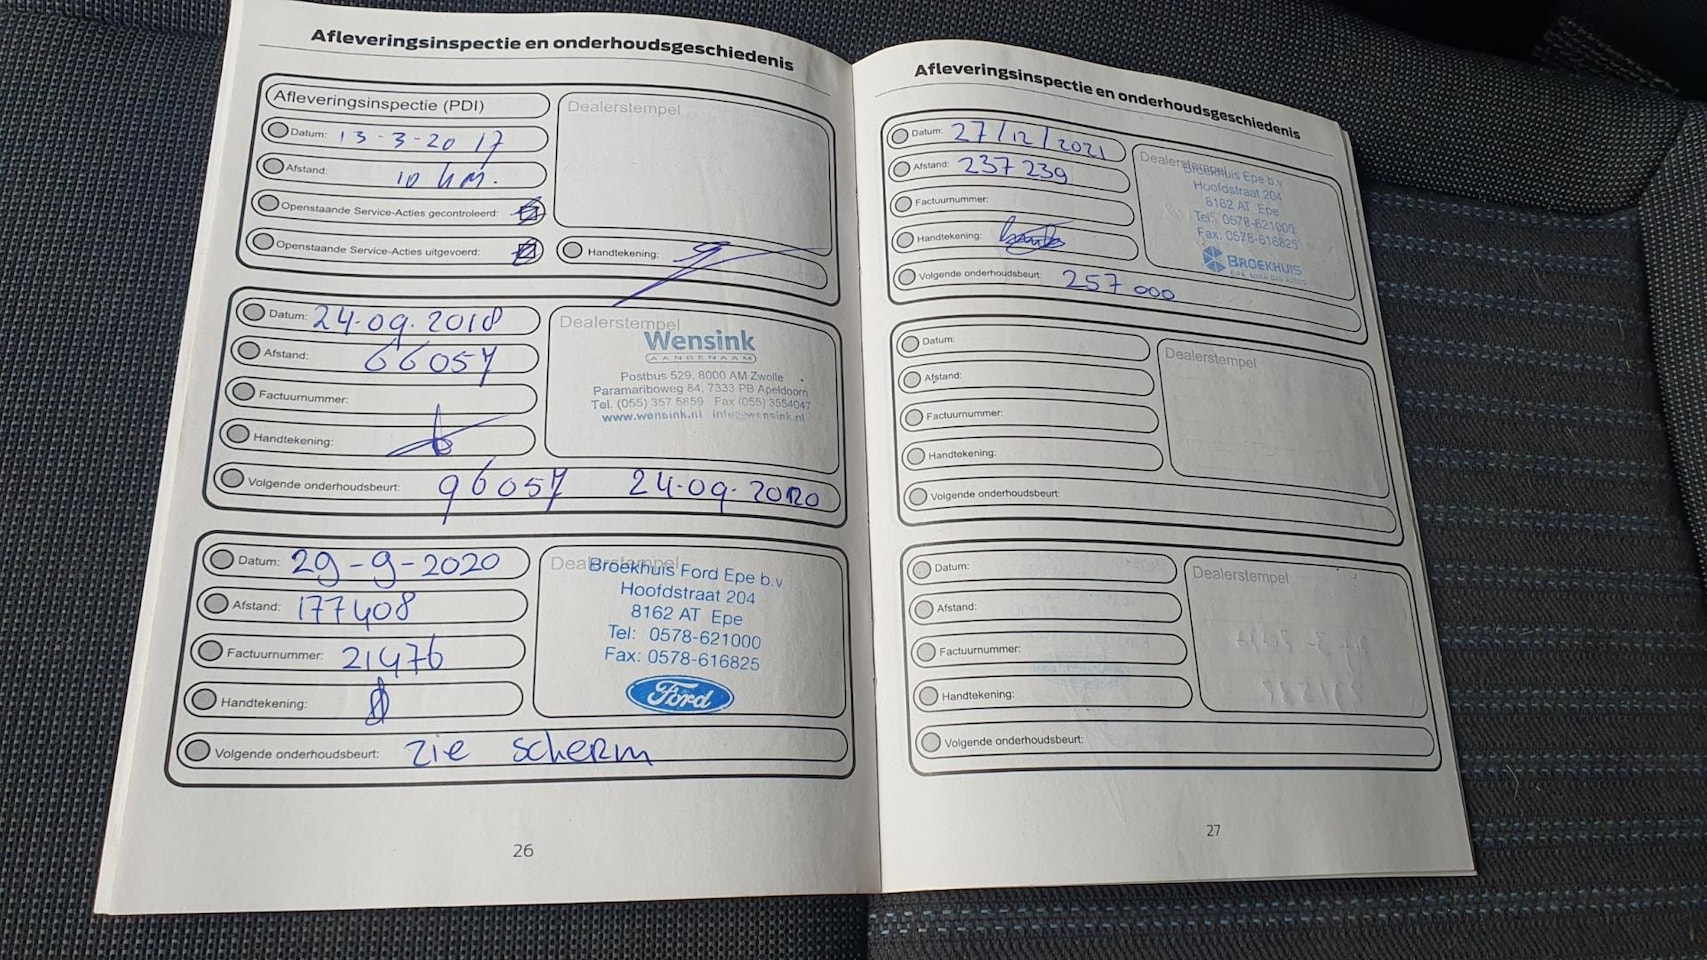 Afleveringsinspectie en onderhoudsgeschiedenis
Afleveringsinspectie (PDI)
Datum: 13-3-2017
Afstand: 10 km.
Openstaande Service-Acties gecontroleerd:
Openstaande Service-Acties uitgevoerd:
Dealerstempel
Handtekening:
Datum: 24-09-2018
Afstand: 66057
Factuurnummer:
Handtekening:
Volgende onderhoudsbeurt: 96057 24-09-2020
Dealerstempel
Wensink
AANGENAAM
Postbus 529, 8000 AM Zwolle
Paramariboweg 84, 7333 PB Apeldoorn
Tel. (055) 357 5859 Fax (055) 3554047
www.wensink.nl info@wensink.nl
Datum: 29-9-2020
Afstand: 177408
Factuurnummer: 21476
Handtekening:
Volgende onderhoudsbeurt: zie scherm
Dealerstempel
Broekhuis Ford Epe b.v.
Hoofdstraat 204
8162 AT Epe
Tel: 0578-621000
Fax: 0578-616825
Ford
26
Afleveringsinspectie en onderhoudsgeschiedenis
Datum: 27/12/2021
Afstand: 237 239
Factuurnummer:
Handtekening:
Volgende onderhoudsbeurt: 257 000
Dealerstempel
Broekhuis Epe b.v.
Hoofdstraat 204
8162 AT Epe
Tel: 0578-621000
Fax: 0578-616825
BROEKHUIS
Datum:
Afstand:
Factuurnummer:
Handtekening:
Volgende onderhoudsbeurt:
Dealerstempel
Datum:
Afstand:
Factuurnummer:
Handtekening:
Volgende onderhoudsbeurt:
Dealerstempel
27